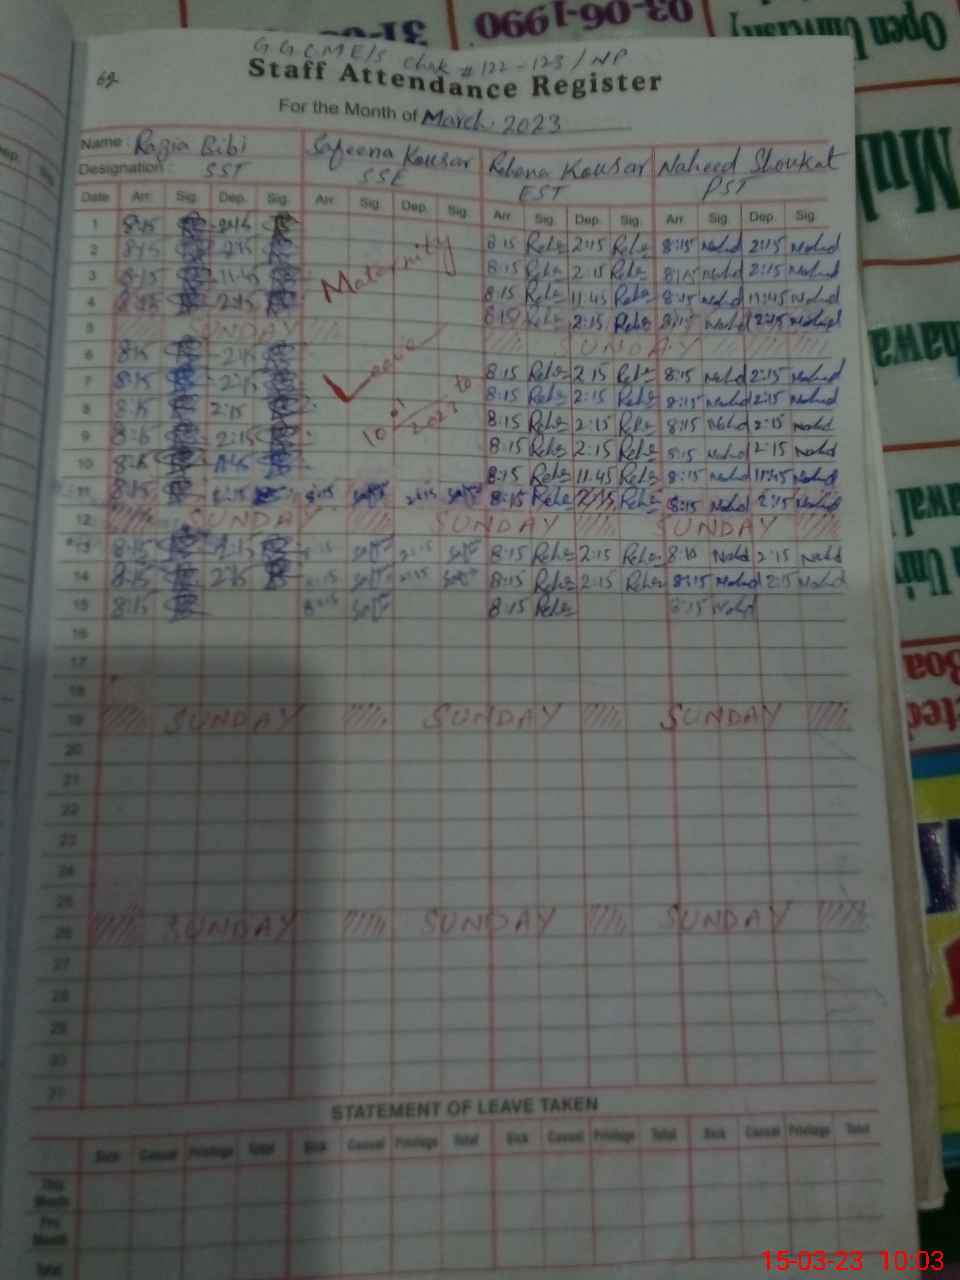 31-0
03-06-1990
Open University
G G C M E/S Chak # 122-123/NP
62
Staff Attendance Register
For the Month of March. 2023
Name : Razia Bibi Safeena Kousar Rehana Kousar Naheed Shoukat
Designation : SST SSE EST PST
Date Arr. Sig. Dep. Sig. Arr. Sig. Dep. Sig. Arr. Sig. Dep. Sig. Arr. Sig. Dep. Sig.
1 8:15 2:15 8:15 Reha 2:15 Reha 8:15 Nahd 2:15 Nahd
2 8:15 2:15 Maternity 8:15 Reha 2:15 Reha 8:15 Nahd 2:15 Nahd
3 8:15 11:45 8:15 Reha 11:45 Reha 8:15 Nahd 11:45 Nahd
4 8:15 2:15 8:15 Reha 2:15 Reha 8:15 Nahd 2:15 Nahd
5 SUNDAY SUNDAY
6 8:15 2:15 Leave 8:15 Reha 2:15 Reha 8:15 Nahd 2:15 Nahd
7 8:15 2:15 to 8:15 Reha 2:15 Reha 8:15 Nahd 2:15 Nahd
8 8:15 2:15 2023 8:15 Reha 2:15 Reha 8:15 Nahd 2:15 Nahd
9 8:15 2:15 10 8:15 Reha 2:15 Reha 8:15 Nahd 2:15 Nahd
10 8:15 11:45 8:15 Reha 11:45 Reha 8:15 Nahd 11:45 Nahd
11 8:15 2:15 8:15 2:15 8:15 Reha 2:15 Reha 8:15 Nahd 2:15 Nahd
12 SUNDAY SUNDAY SUNDAY
13 8:15 2:15 8:15 2:15 8:15 Reha 2:15 Reha 8:15 Nahd 2:15 Nahd
14 8:15 2:15 8:15 2:15 8:15 Reha 2:15 Reha 8:15 Nahd 2:15 Nahd
15 8:15 8:15 8:15 Reha 8:15 Nahd
16
17
18
19 SUNDAY SUNDAY SUNDAY
20
21
22
23
24
25
26 SUNDAY SUNDAY SUNDAY
27
28
29
30
31
STATEMENT OF LEAVE TAKEN
Sick Casual Privilege Total Sick Casual Privilege Total Sick Casual Privilege Total Sick Casual Privilege Total
This Month
Pre. Month
Total
15-03-23 10:03